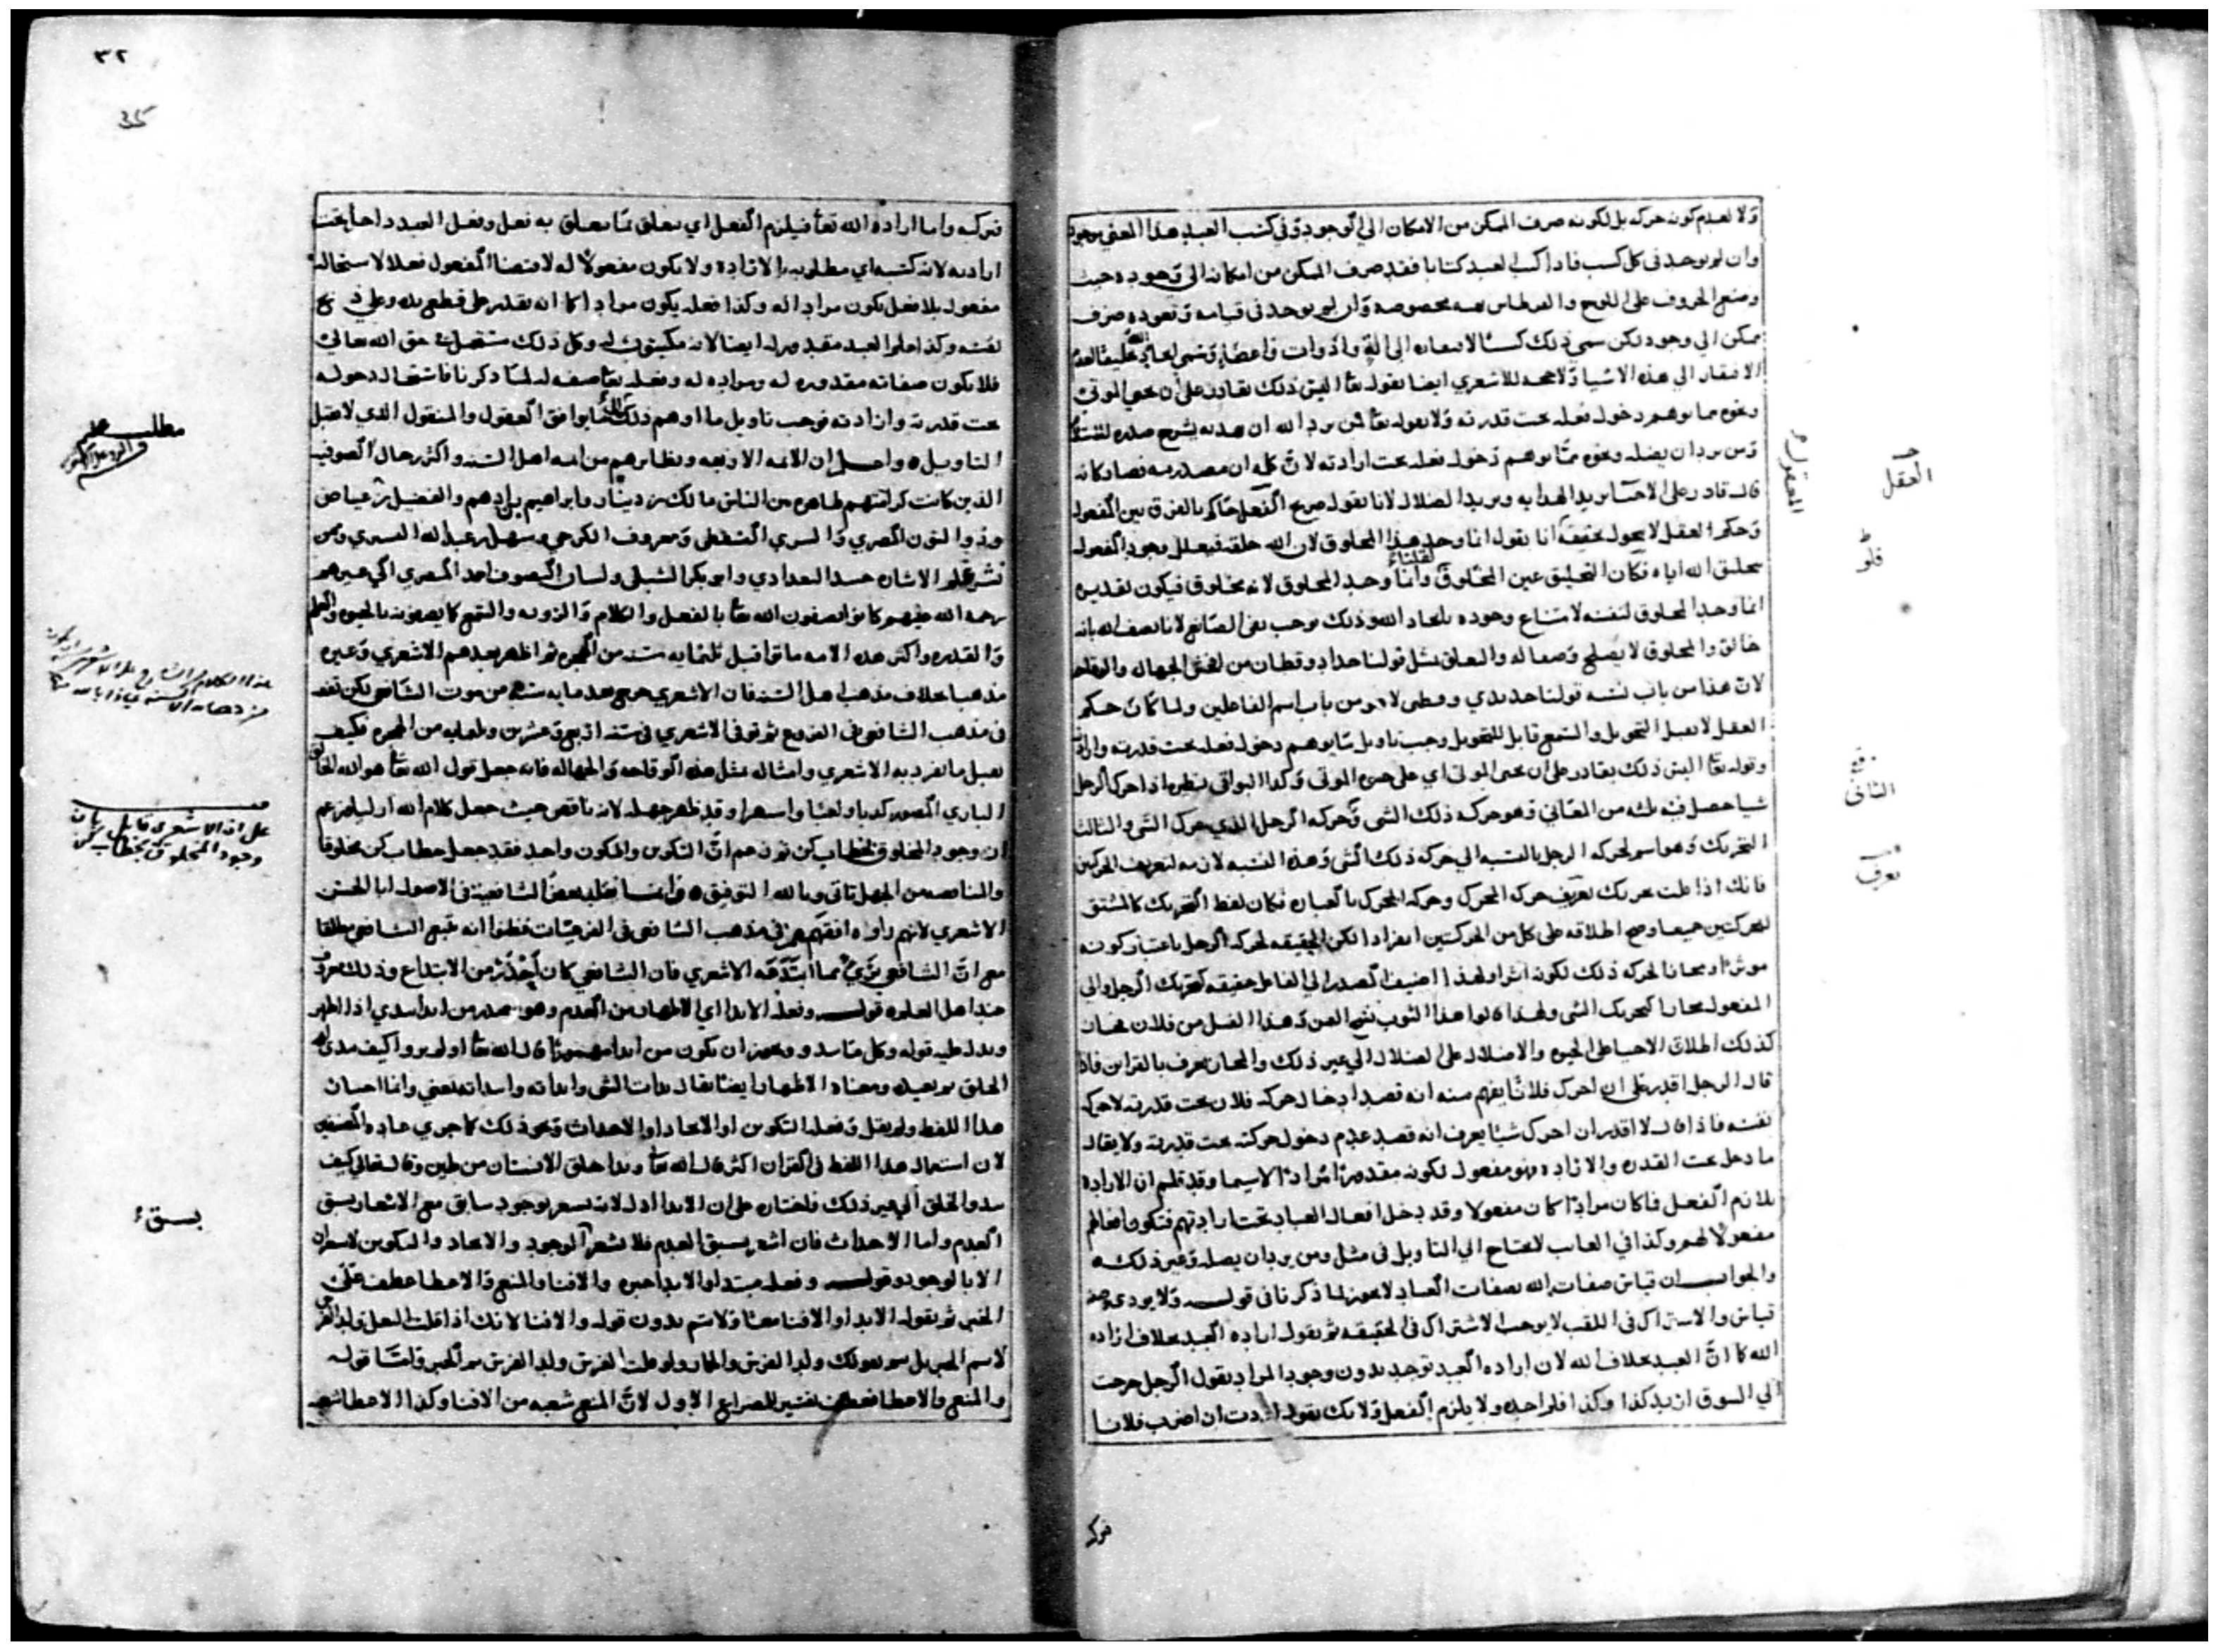 ولا لعدم كونه حركة بل لكونه صرف الممكن من الامكان الى الوجود وفي كسب العبد هذا المعنى موجود
وان لم يوجد في كل كسب فاذا كتب العبد كتابا فقد صرف الممكن من امكانه الى وجوده حيث
وضع الحروف على اللوح والقرطاس مخصوصة وان لم يوجد في قيامه وقعوده صرف
ممكن الى وجود لكن سمي ذلك كسبا لافتقاره الى الة وادوات واعضاء
الافتقار الى هذه الاشيا ولا حجة للاشعري ايضا بقوله تعا اليس ذلك بقادر على ان يحيي الموتى
ونحوه مما يوهم دخول فعله تحت قدرته ولا بقوله تعا فمن يرد الله ان يهديه يشرح صدره
ومن يرد ان يضله ونحوه مما يوهم دخول فعله تحت ارادته لان كلمة ان مصدرية فصار كانه
قال قادر على الاحيا يريد الهداية ويريد الضلال لانا نقول صريح العقل حاكم بالفرق بين الفعول
وحكم العقل لا يحول بحقيقة انا نقول انما وجد هذا المخلوق لان الله خلقه فيعلل وجود المفعول
بتخليق الله اياه فكان التخليق عين المخلوق لقلنا انما وجد المخلوق لانه مخلوق فيكون تقديره
انما وجد المخلوق لنفسه لامتناع وجوده بايجاد الله وذلك يوجب نفي الصانع لانا نصف الله بانه
خالق والمخلوق لا يصلح وصفا له والتعلق بمثل قولنا حداد وقطان من افحش الجهالة والوقاحة
لان هذا من باب نسبة قولنا حديدي وقطني لا من باب اسم الفاعلين ولما كان حكم
العقل لا يقبل التحويل والسمع قابل للتحويل وجب تاويل ما يوهم دخول فعله تحت قدرته وارادته
وقوله تعا اليس ذلك بقادر على ان يحيي الموتى اي على حيوة الموتى وكذا البواقي نظيره اذا حرك الرجل
شيا حصل فيه ثلثة من المعاني وهو حركة ذلك الشي وحركة الرجل الذي حرك الشي والثالث
التحريك وهو اسم لحركة الرجل بالنسبة الى حركة ذلك الشي وهذه النسبة لازمة لتعريف الحركتين
فانك اذا قلت تحريك تعرف حركة المحرك وحركة المحرك بالعبارة فكان لفظ التحريك كالمشتق
للحركتين جميعا وصح اطلاقه على كل من الحركتين انفرادا لكن الحقيقة لحركة الرجل باعتبار كونه
موثرا ومجازا لحركة ذلك لكونه اثرا ولهذا اضيف المصدر الى الفاعل حقيقة كتحريك الرجل والى
المفعول مجازا كتحريك الشي ولهذا قالوا هذا الثوب نسج اليمن وهذا الفعل من فلان مجاز
كذلك اطلاق الاحيا على الحيوة والاضلال على الضلال الى غير ذلك والمجاز يعرف بالقراين فاذا
قال الرجل اقدر على ان احرك فلانا يفهم منه انه قصد ادخال حركة فلان تحت قدرته لا حركة
نفسه فاذا قال لا اقدر ان احرك شيا يعرف انه قصد عدم دخول حركته تحت قدرته ولا يقال
ما دخل تحت القدرة والارادة فهو مفعول لكونه مقدورا مرادا لا سيما وقد قلتم ان الارادة
يلازم الفعل فاكان مرادا كان مفعولا وقد دخل افعال العباد تحت ارادتهم فتكون افعالهم
مفعولا لهم وكذا في الغايب لا يحتاج الى التاويل في مثل ومن يرد ان يضله وغير ذلك
والجواب ان قياس صفات الله بصفات العباد لا يجوز لما ذكرنا في قوله ولا يودي
قياس والاشتراك في اللقب لا يوجب الاشتراك في الحقيقة ثم نقول ارادة العبد بخلاف ارادة
الله كما ان العبد بخلاف الله لان ارادة العبد توجد بدون وجود المراد يقول الرجل خرجت
الى السوق اريد كذا وكذا فلم اجده ولا يلزم الفعل ولانك تقول اردت ان اضرب فلانا
فتركه
العقل
الثاني
تعرف
٣٢
35
فتركته واما ارادة الله تعا فيلزم الفعل اي تعلق بما تعلق به فعل وفعل العبد داخل تحت
ارادته لانه كسبه اي مطلوبه بالارادة ولا يكون مفعولا له لاقتضا المفعول فعلا لاستحالة
مفعول بلا فعل يكون مرادا له وكذا فعله يكون مرادا كما انه يقدر على قطع يده وعلى ذبح
نفسه وكذا علم العبد مقدور له ايضا لانه مكتسب له وكل ذلك مستحيل في حق الله تعالى
فلا يكون صفاته مقدورة له ومرادة له وفعله تعا صفة له لما ذكرنا فاستحال دخوله
تحت قدرته وارادته فوجب تاويل ما اوهم ذلك بما يوافق العقول والمنقول الذي لا يقبل
التاويل واعلم ان الائمة الاربعة ونظايرهم من ايمة اهل السنة واكثر رجال الصوفية
الذين كانت كرامتهم ظاهرة بين الناس مالك بن دينار وابراهيم بن ادهم والفضيل بن عياض
وذو النون المصري والسري السقطي ومعروف الكرخي وسهل بن عبد الله التستري ومن
نشر علم الاشارة جنيد البغدادي وابو بكر الشبلي ولسان التصوف احمد المصري الى غيرهم
رحمة الله عليهم كانوا يصفون الله تعا بالفعل والكلام والرؤية والسمع كما يصفونه بالحيوة والعلم
والقدرة واكثر هذه الامة ماتوا قبل ثلثماية سنة من الهجرة ثم اظهر بعدهم الاشعري وغيره
مذهبا بخلاف مذهب اهل السنة فان الاشعري خرج بعد ماية سنة من موت الشافعي لكن تفقه
في مذهب الشافعي في الفروع ثم توفي الاشعري في سنة اربع وعشرين وثلثماية من الهجرة فكيف
يقبل ما تفرد به الاشعري وامثاله بمثل هذه الوقاحة والجهالة فانه جعل قول الله تعا هو الله الخالق
الباري المصور كذبا ولعبا واستهزا وقد ظهر جهله لانه ناقض حيث جعل كلام الله ازليا وزعم
ان وجود المخلوق بخطاب كن ثم زعم ان التكوين والمكون واحد فقد جعل خطاب كن مخلوقا
والمناقضة من الجهل تاتي وبالله التوفيق وانما تقليد بعض الشافعية في الاصول ابا الحسن
الاشعري لانهم راوه افقههم في مذهب الشافعي في الفرعيات فظنوا انه متبع الشافعي مطلقا
مع ان الشافعي بريء مما ابتدعه الاشعري فان الشافعي كان احذر من الابتداع وذلك معروف
عند اهل العلم قوله وفعله الابدا اي الاظهار من العدم وهو مصدر من ابدا يبدي اذا اظهر
ويدل عليه قوله وكل ما يبدو ويجوز ان يكون من ابدا مهموزا قال الله تعا اولم يروا كيف يبدئ الله
الخلق ثم يعيده ومعناه الاظهار ايضا يقال بدات الشي وابداته وابتداته بمعنى وانما اختار
هذا اللفظ ولم يقل وفعله التكوين او الايجاد او الاحداث ونحو ذلك كما جرى عادة المصنفين
لان استعمال هذا اللفظ في القران اكثر قال الله تعا وبدا خلق الانسان من طين وقال تعالى كيف
يبدو الخلق الى غير ذلك فاختاره على ان الابدا ادل لانه يشعر بوجود سابق مع الاشعار بسبق
العدم واما الاحداث فانه اشعر بسبق العدم فلا يشعر الوجود والايجاد والتكوين لا يشعران
الا بالوجود وقوله وفعله مبتدا والابدا خبره والافنا والمنع والاعطا عطف على
الخبر ثم نقول الابدا والافنا معا ولا يتم بدون قوله والافنا لانك اذا قلت البغل ولد الفرس
لا يتم الخبر بل يتم بقولك ولد الفرس والحمار ولو قلت الفرس ولد الفرس يتم الخبر واما قوله
والمنع والاعطا فعطف تفسير للمصراع الاول لان المنع شعبة من الافنا وكذا الاعطا شعبة
مطلب
على ان الاشعري قايل بان
وجود المخلوق بخطاب كن
بسبق